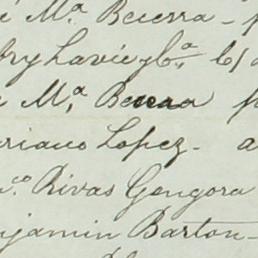 é M.ª Becerra - p
fry Lavie y C.ª 6/
é M.ª Becerra p
riano Lopez - a
co. Rivas Gongora
njamin Barton -